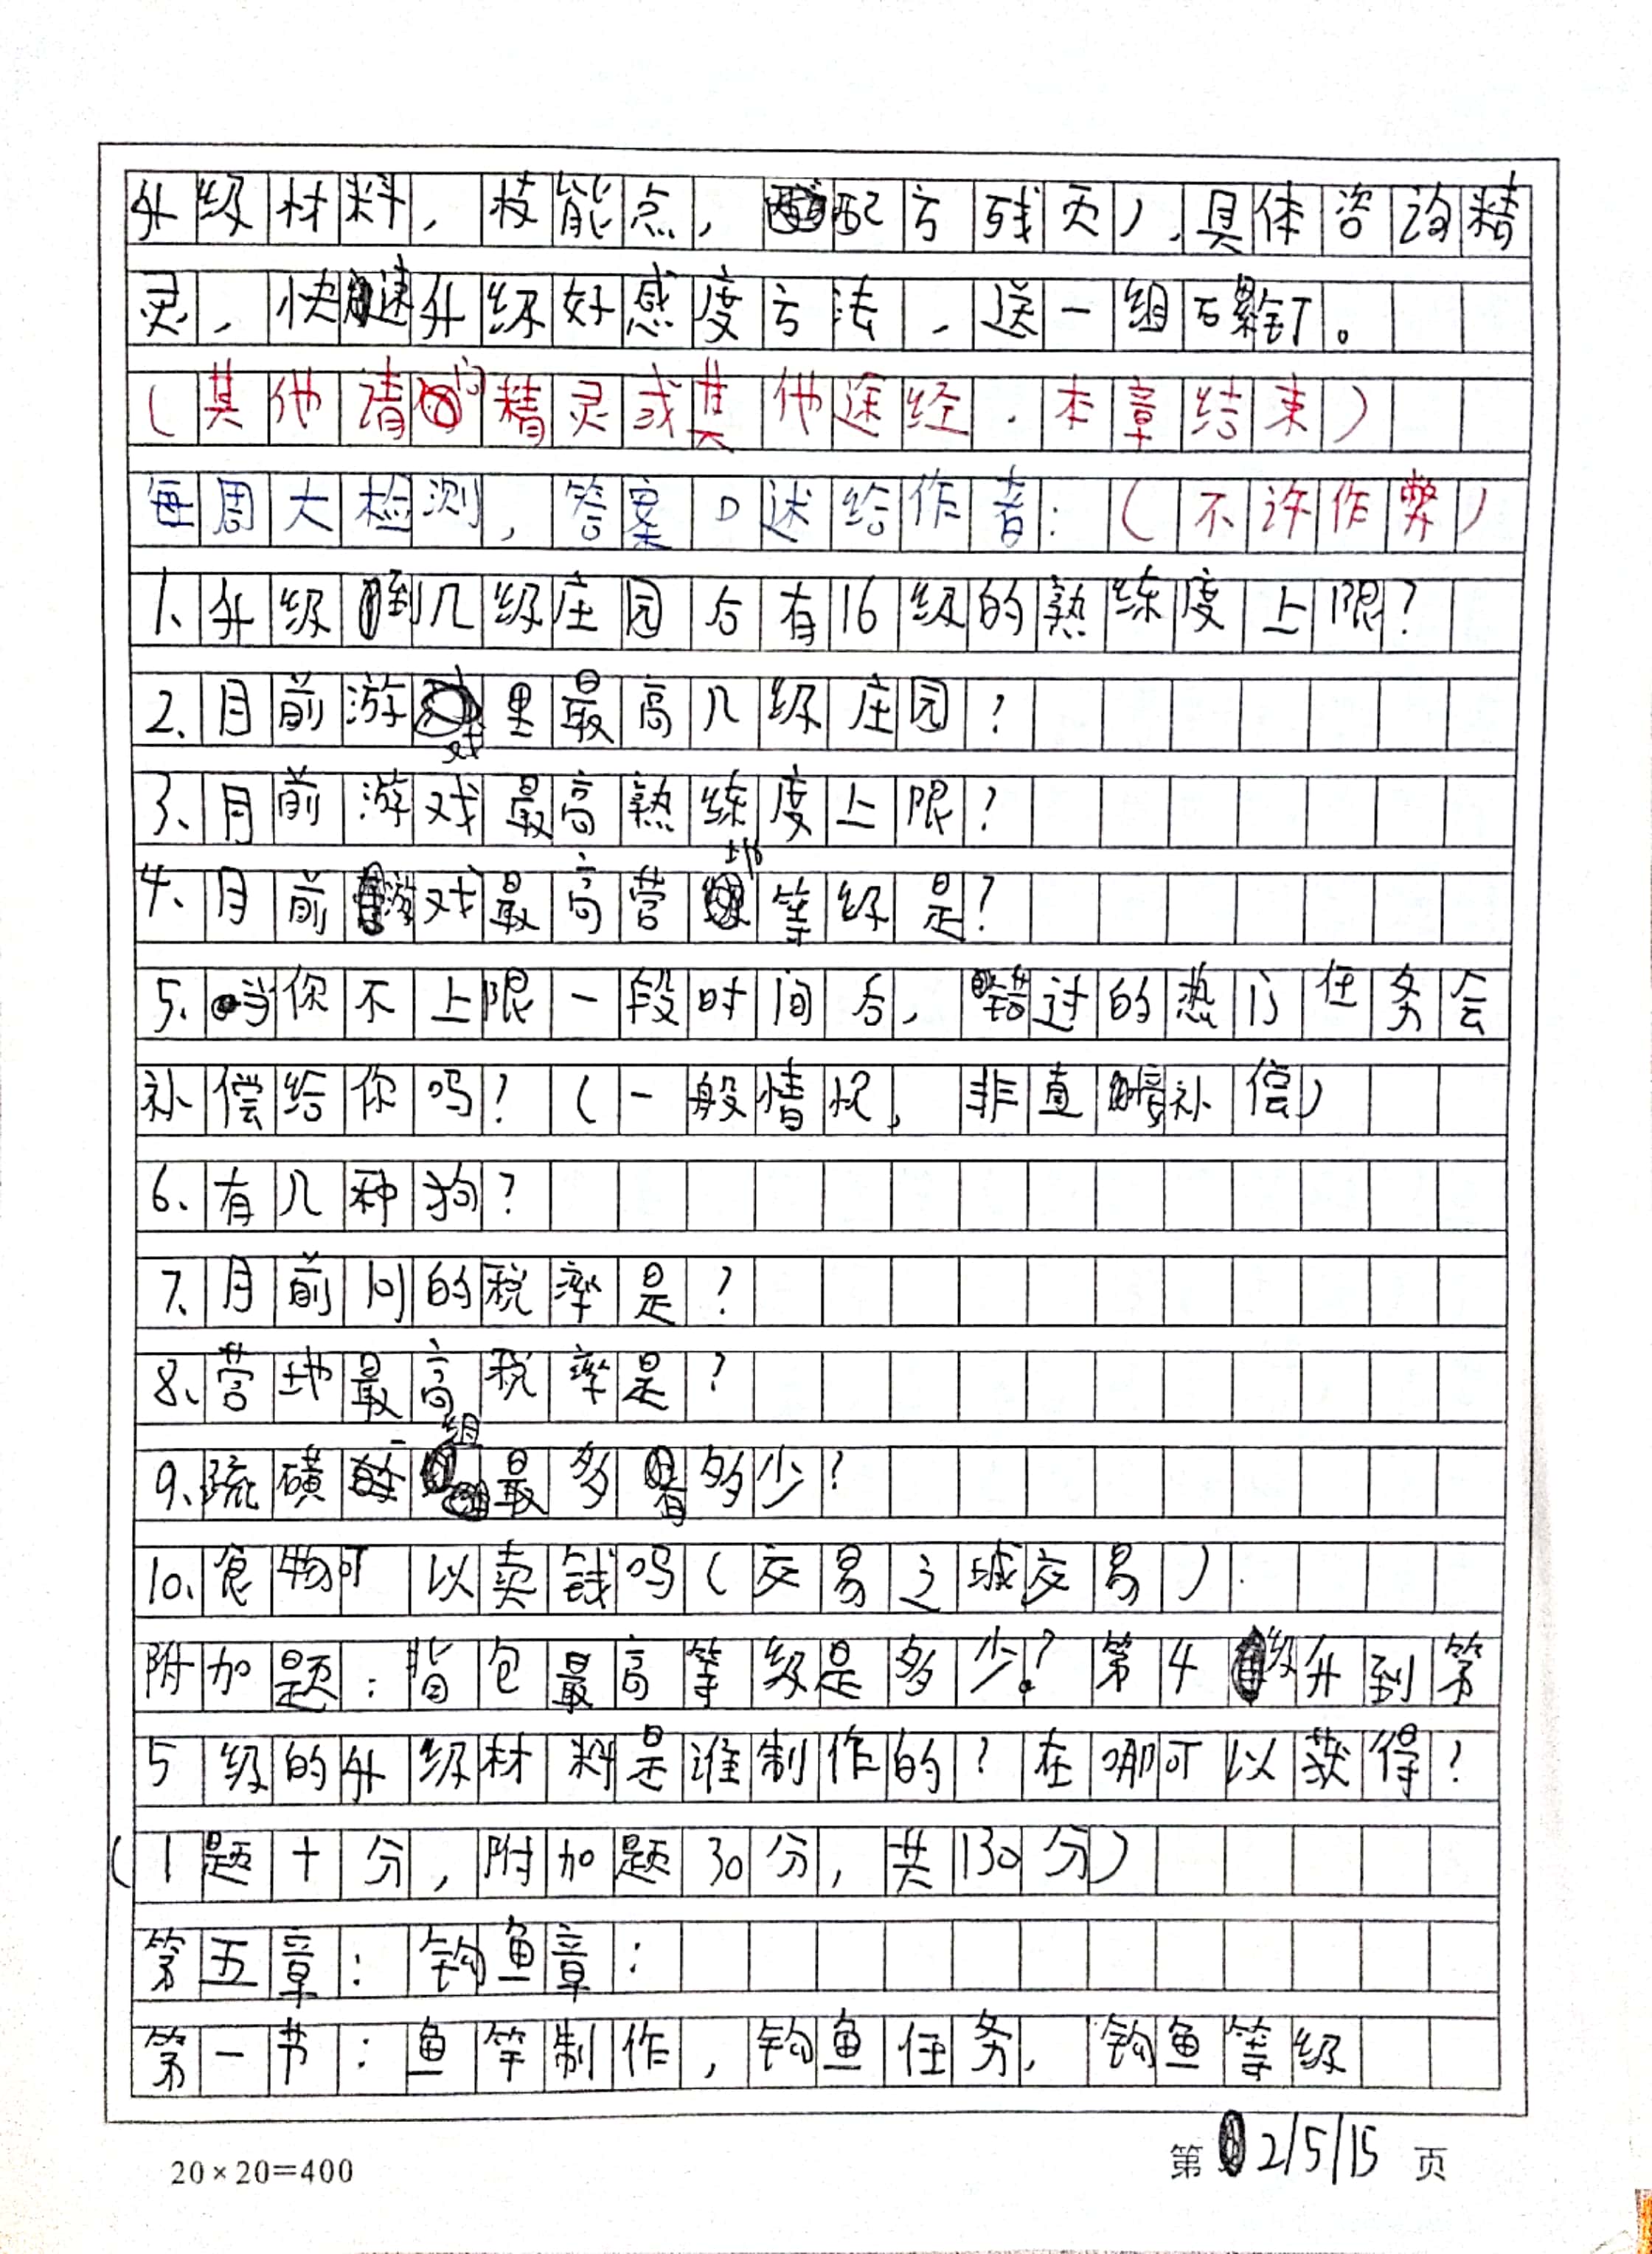 升级材料，技能点，配方残页），具体咨询精
灵，快速升级好感度方法，送一组石累钉。
（其他请问精灵或其他途经．本章结束）
每周大检测，答案口述给作者：（不许作弊）
1、升级到几级庄园后有16级的熟练度上限？
2、目前游戏里最高几级庄园？
3、目前游戏最高熟练度上限？
4、目前游戏最高营地等级是？
5、当你不上限一段时间后，错过的热门任务会
补偿给你吗？（一般情况，非直接补偿）
6、有几种狗？
7、目前的税率是？
8、营地最高税率是？
9、硫磺一组最多有多少？
10、食物可以卖钱吗（交易之城交易）．
附加题：背包最高等级是多少？第4级升到第
5级的升级材料是谁制作的？在哪可以获得？
（1题十分，附加题30分，共130分）
第五章：钓鱼章：
第一节：鱼竿制作，钓鱼任务，钓鱼等级
20×20=400
第2/5/15页